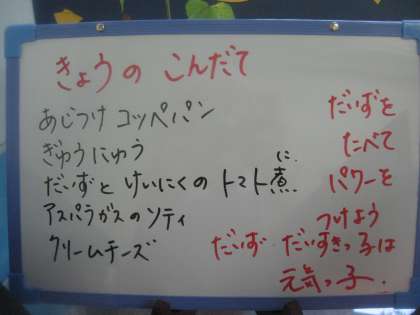 きょうの こんだて
あじつけ コッペパン
ぎゅうにゅう
だいずと けいにくの トマト煮
に
アスパラガスのソティ
クリームチーズ
だいずを
たべて
パワーを
つけよう
だいず だいずきっ子は
元気っ子.